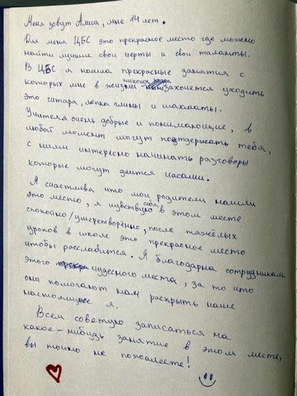 Меня зовут Алиса, мне 14 лет.
Для меня ЦБС это прекрасное место где можно
найти лучшие свои черты и свои таланты.
В ЦБС я нашла прекрасные занятия с
которых мне в жизни никогда не захочется уходить
это гитара, лепка глины и шахматы.
Учителя очень добрые и понимающие, в
любой момент могут поддержать тебя,
с ними интересно начинать разговоры
которые могут длится часами.
Я счастлива что мои родители нашли
это место, я чувствую себя в этом месте
спокойно/умиротворённо, после тяжёлых
уроков в школе это прекрасное место
чтобы расслабится. Я благодарна сотрудникам
этого чудесного места, за то что
они помогают нам раскрыть наше
настоящее я.
Всем советую записаться на
какое-нибудь занятие в этом месте,
вы точно не пожалеете!